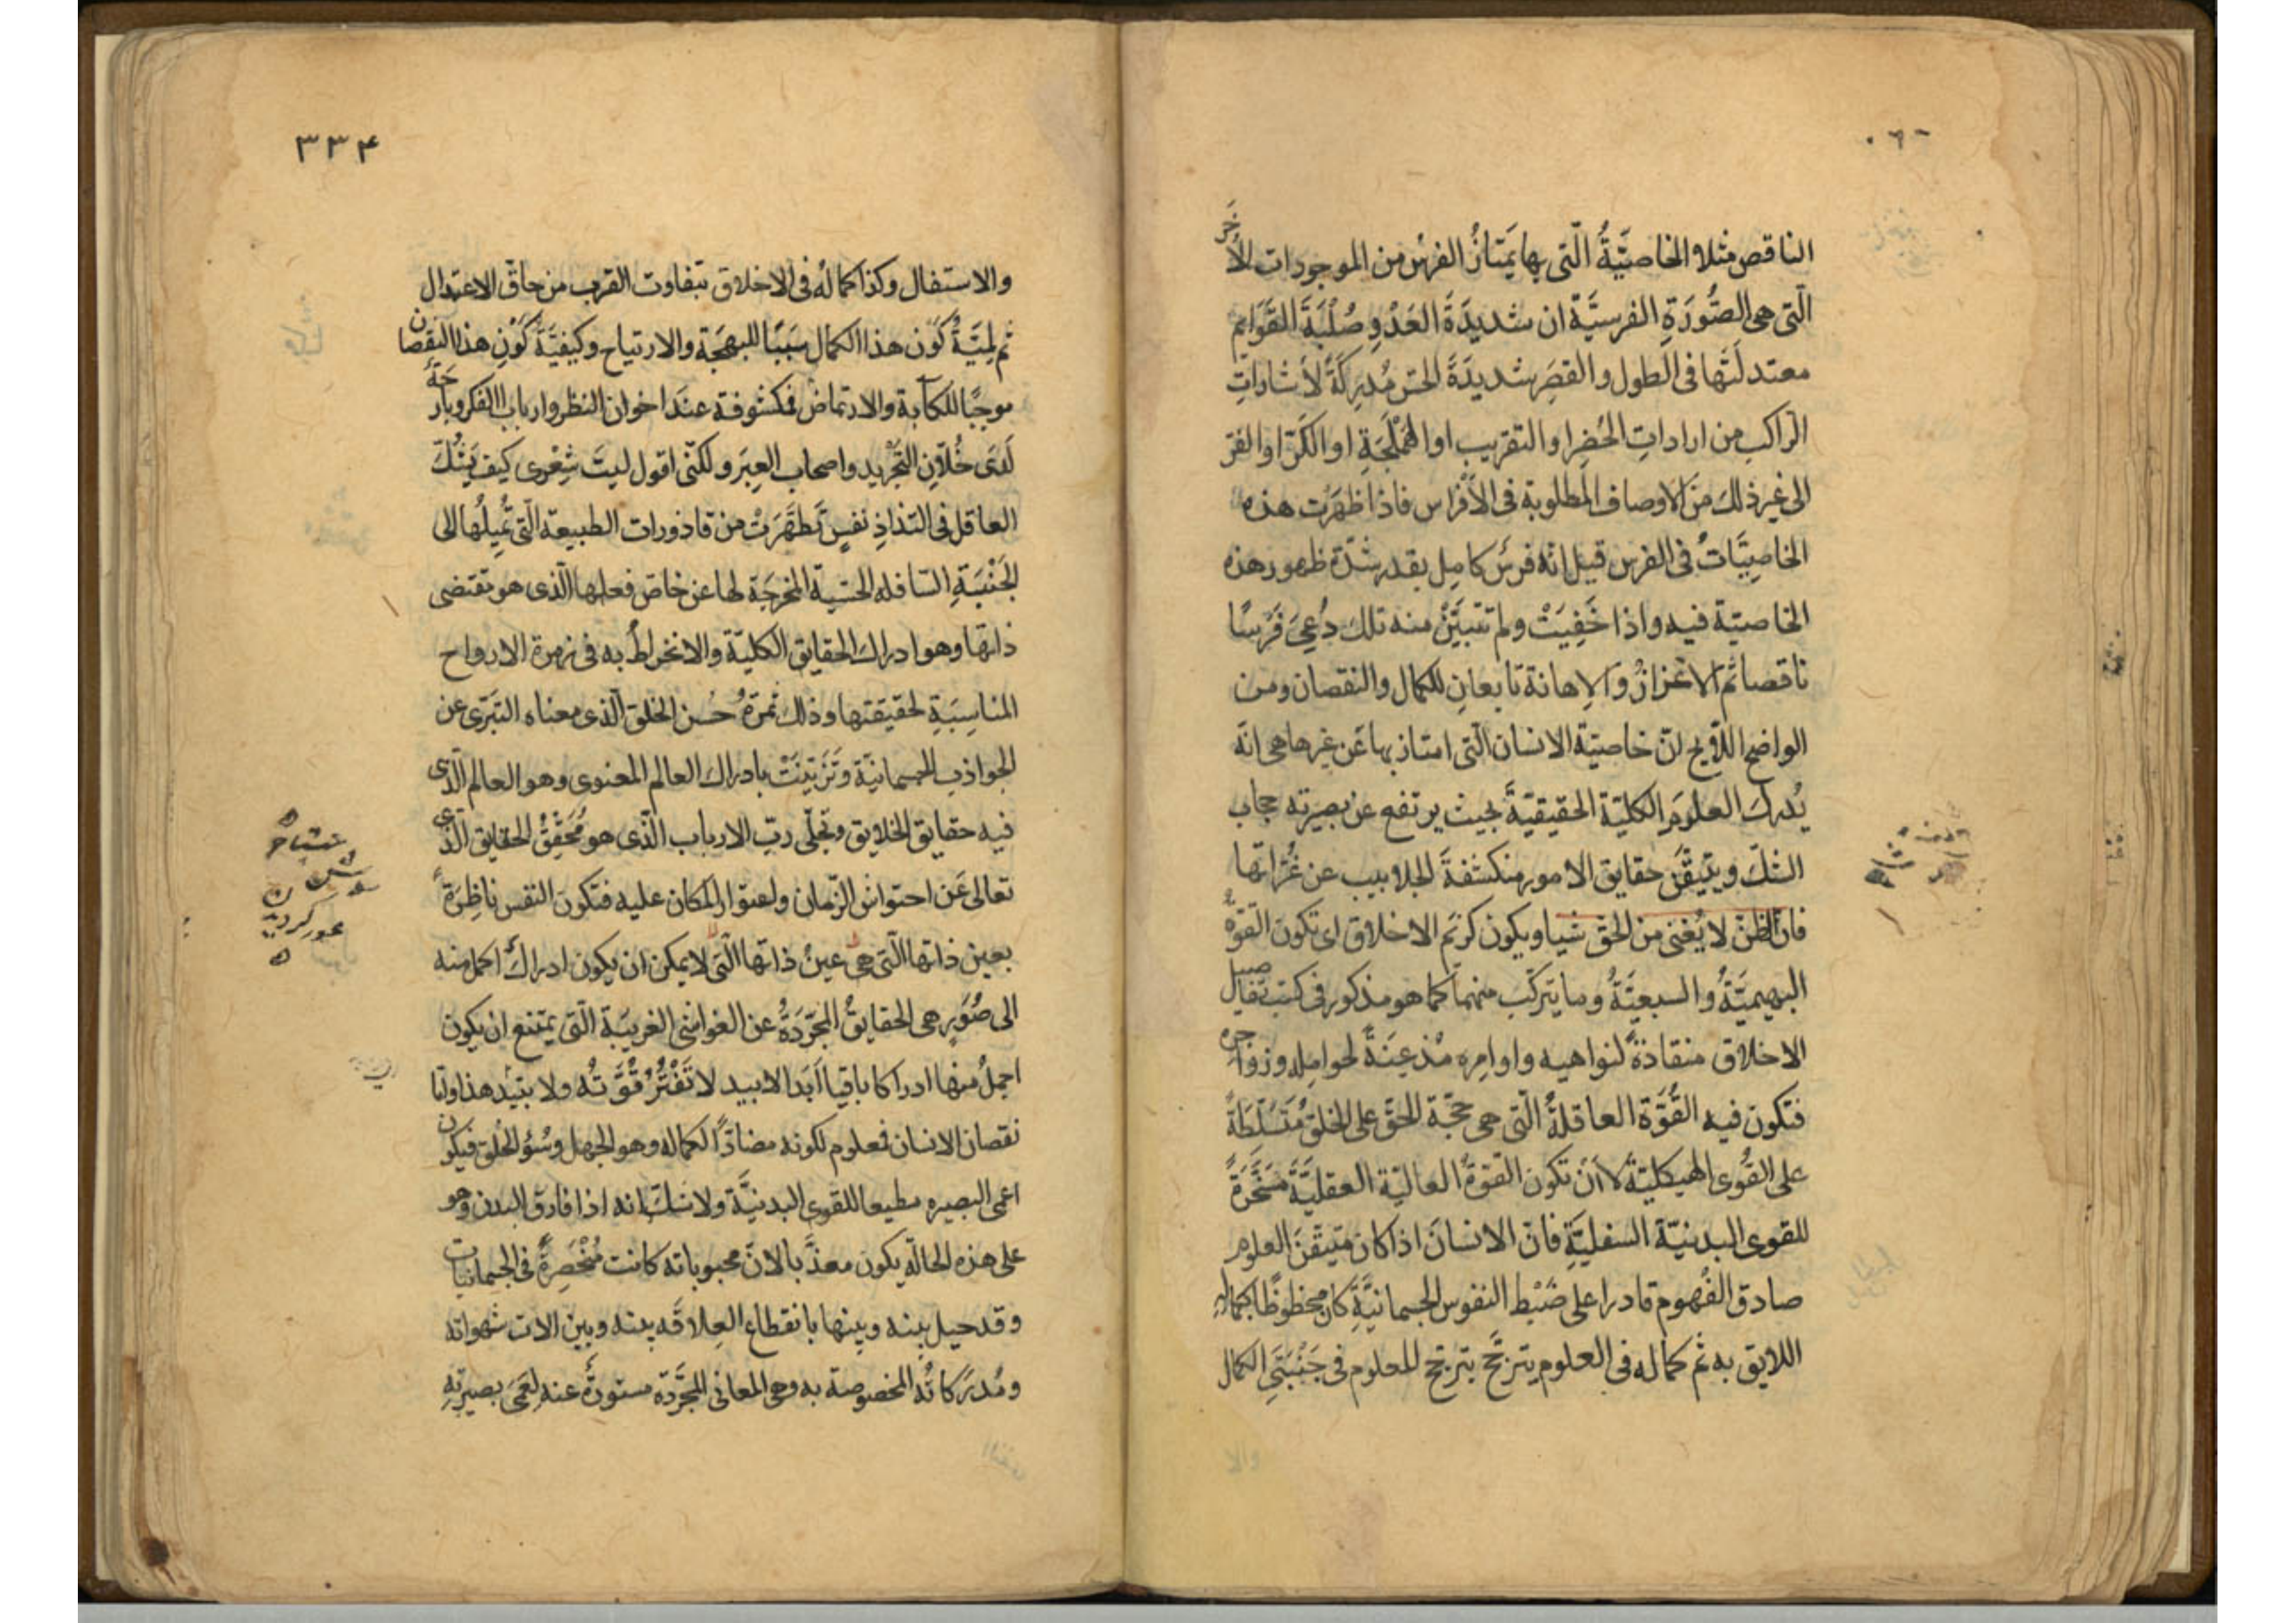 الناقص مثلا الخاصيّةُ الّتى بها يَمتازُ الفرسُ من الموجودات الأُخَر
الّتى هى الصُّورَةِ الفرسيَّة ان شديدَةَ العَدْوِ صُلْبَةَ القَوَايم
معتدلَتَها فى الطول والقِصَر شديدَةَ الحسّ مُدرِكَةً لأشاداتِ
الراكب من اراداتِ الحُضرِ او التقريب او الهَمْلَجَةِ او الكَرّ او الفرّ
الى غير ذلك منَ الاوصاف المطلوبة فى الأَفْراس فاذا ظهَرَت هذه
الخاصِيَّاتُ فى الفرس قيل انّه فرسٌ كامِل بقدر شدّة ظهور هذه
الخاصيّة فيه واذا خَفِيَتْ ولم تتبيَّنْ منه تلك دُعِىَ فَرَسًا
ناقصا ثم الاعْزازُ وَالاِهانة تابعانِ للكمال والنقصان ومن
الواضح اللّايح انّ خاصيّة الانسان الّتى امتاز بها عَن غيرها هى انّه
يُدرك العلومَ الكليّة الحقيقيّةَ بحيث يرتفع عن بصيرته حجاب
الشكّ ويتيقّن حقايق الامور منكشفةَ الجلابيب عن غُرّاتها
فانّ الظنّ لا يُغنى من الحق شيا ويكون كريَم الاخلاق اى تكون القوّة
البهيميَّةُ والسبعيَّةُ وما يتركّب منهما كما هو مذكور فى كتب تفاصيل
الاخلاق منقادةً لنواهيه واوامِره مُذعِنَةً لحوامله وزواجره
فتكون فيه القُوّة العاقلةُ الّتى هى حجّة الحقّ على الخلق مُتَسَلّطَةً
على القُوى الهيكليّة لا اَنْ تكون القوّةُ العاليّة العقليَّةَ مُسَخَّرَةً
للقوى البدنيّة السفليَّةِ فانّ الانسانَ اذا كان متيقّنَ العلوم
صادق الفُهوم قادرا على ضَبْط النفوس الجسمانيَّةِ كان محظوظًا بكماله
اللايق به ثم كماله فى العلوم يترجَّح بترجّح المعلوم فى جَنْبَتَىِ الكمال
والا
٣٣۴
والاستفال وكذا كمالُه فى الاخلاق بتفاوت القرب من حاقّ الاعتدال
ثم لِميَّةُ كَوْن هذا الكمال سَبَبًا للبهجَة والارتياح وكيفيَّةُ كَوْنِ هذا النقصان
موجبًا للكآبة والارتماض فمكشوفة عندَ اخوان النظر وارباب الفكر وبارحَةٌ
لَدَى خُلّانِ التَجْريد واصحاب العِبَر ولكنّى اقول ليتَ شِعْرى كيف يَشُكّ
العاقل فى التذاذِ نفسٍ تَطهَّرَتْ من قاذورات الطبيعة الّتى تُميلُها الى
الجَنْبَةِ السّافله الحسّية المخرجَة لها عن خاصّ فعلها الّذى هو تقتضى
ذاتها وهو ادراك الحقايق الكليّة والانخراطُ به فى زمرة الارواح
المناسِبَةِ لحقيقتها وذلك ثمرَةُ حُسن الخلق الّذى معناه التبرّى عن
الجواذبِ الجسمانيّة وتَزَيَّنَتْ بادراك العالم المعنوى وهو العالم الّذى
فيه حقايق الخلايق وتجلّى ربّ الارباب الّذى هو مُحَقِّقُ الحقايق الّذى
تعالى عَن احتواش الزّمان ولعتوار المكان عليه فتكونَ النفس ناظِرَةً
بعين ذاتها الّتى هى عينُ ذاتها الّتى لا يمكن ان يكون ادراكٌ اكمل منه
الى صُوَرٍ هى الحقايقُ المجرّدَةُ عن الغواشى الغريبَة الّتى يمتنع ان يكون
اجملُ منها ادراكا باقيا اَبَدَ الابيد لا تَفْتُرُ قُوَّتُه ولا يبيد هذا وامّا
نقصان الانسان فمعلوم لكونه مضادًّا لكماله وهو الجهل وسُؤ الخُلق فيكون
اعمى البصيره مطيعا للقوى البدنيَّة ولا شكّ انه اذا فارق البدن وهو
على هذه الحالة يكون معذَّبا لانّ محبوباته كانت مُنْحَصِرَةً فى الجسمانيات
وقد حيل بينه وبينها بانقطاع العِلاقَه بينه وبين الات شهواته
ومُدرَكاتُه المخصوصة به وهى المعانى المجرَّدة مستورةٌ عنه لعَمَى بصيرتِهِ